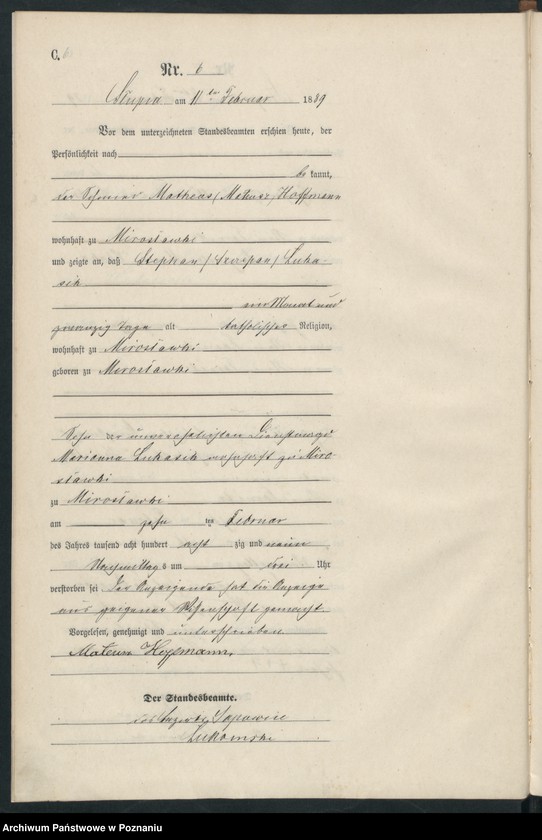 C.
Nr. 6
Slupia am 11ten Februar 1889
Vor dem unterzeichneten Standesbeamten erschien heute, der
Persönlichkeit nach
be kannt,
der Matheas (Mateusz) Hoffmann
wohnhaft zu Miroslawki
und zeigte an, daß Stephan (Szczepan) Luka-
sik
ein Monat und
zwanzig Tage alt katholischer Religion,
wohnhaft zu Miroslawki
geboren zu Miroslawki
Sohn der unverehelichten Dienstmagd
Marianna Lukasik wohnhaft zu Miro-
slawki
zu Miroslawki
am zehn ten Februar
des Jahres tausend acht hundert acht zig und neun
Nachmittags um drei Uhr
verstorben sei Der Anzeigende hat die Anzeige
aus eigener Wissenschaft gemacht.
Vorgelesen, genehmigt und unterschrieben
Mateusz Hoffmann,
Der Standesbeamte.
Lukomski
Archiwum Państwowe w Poznaniu